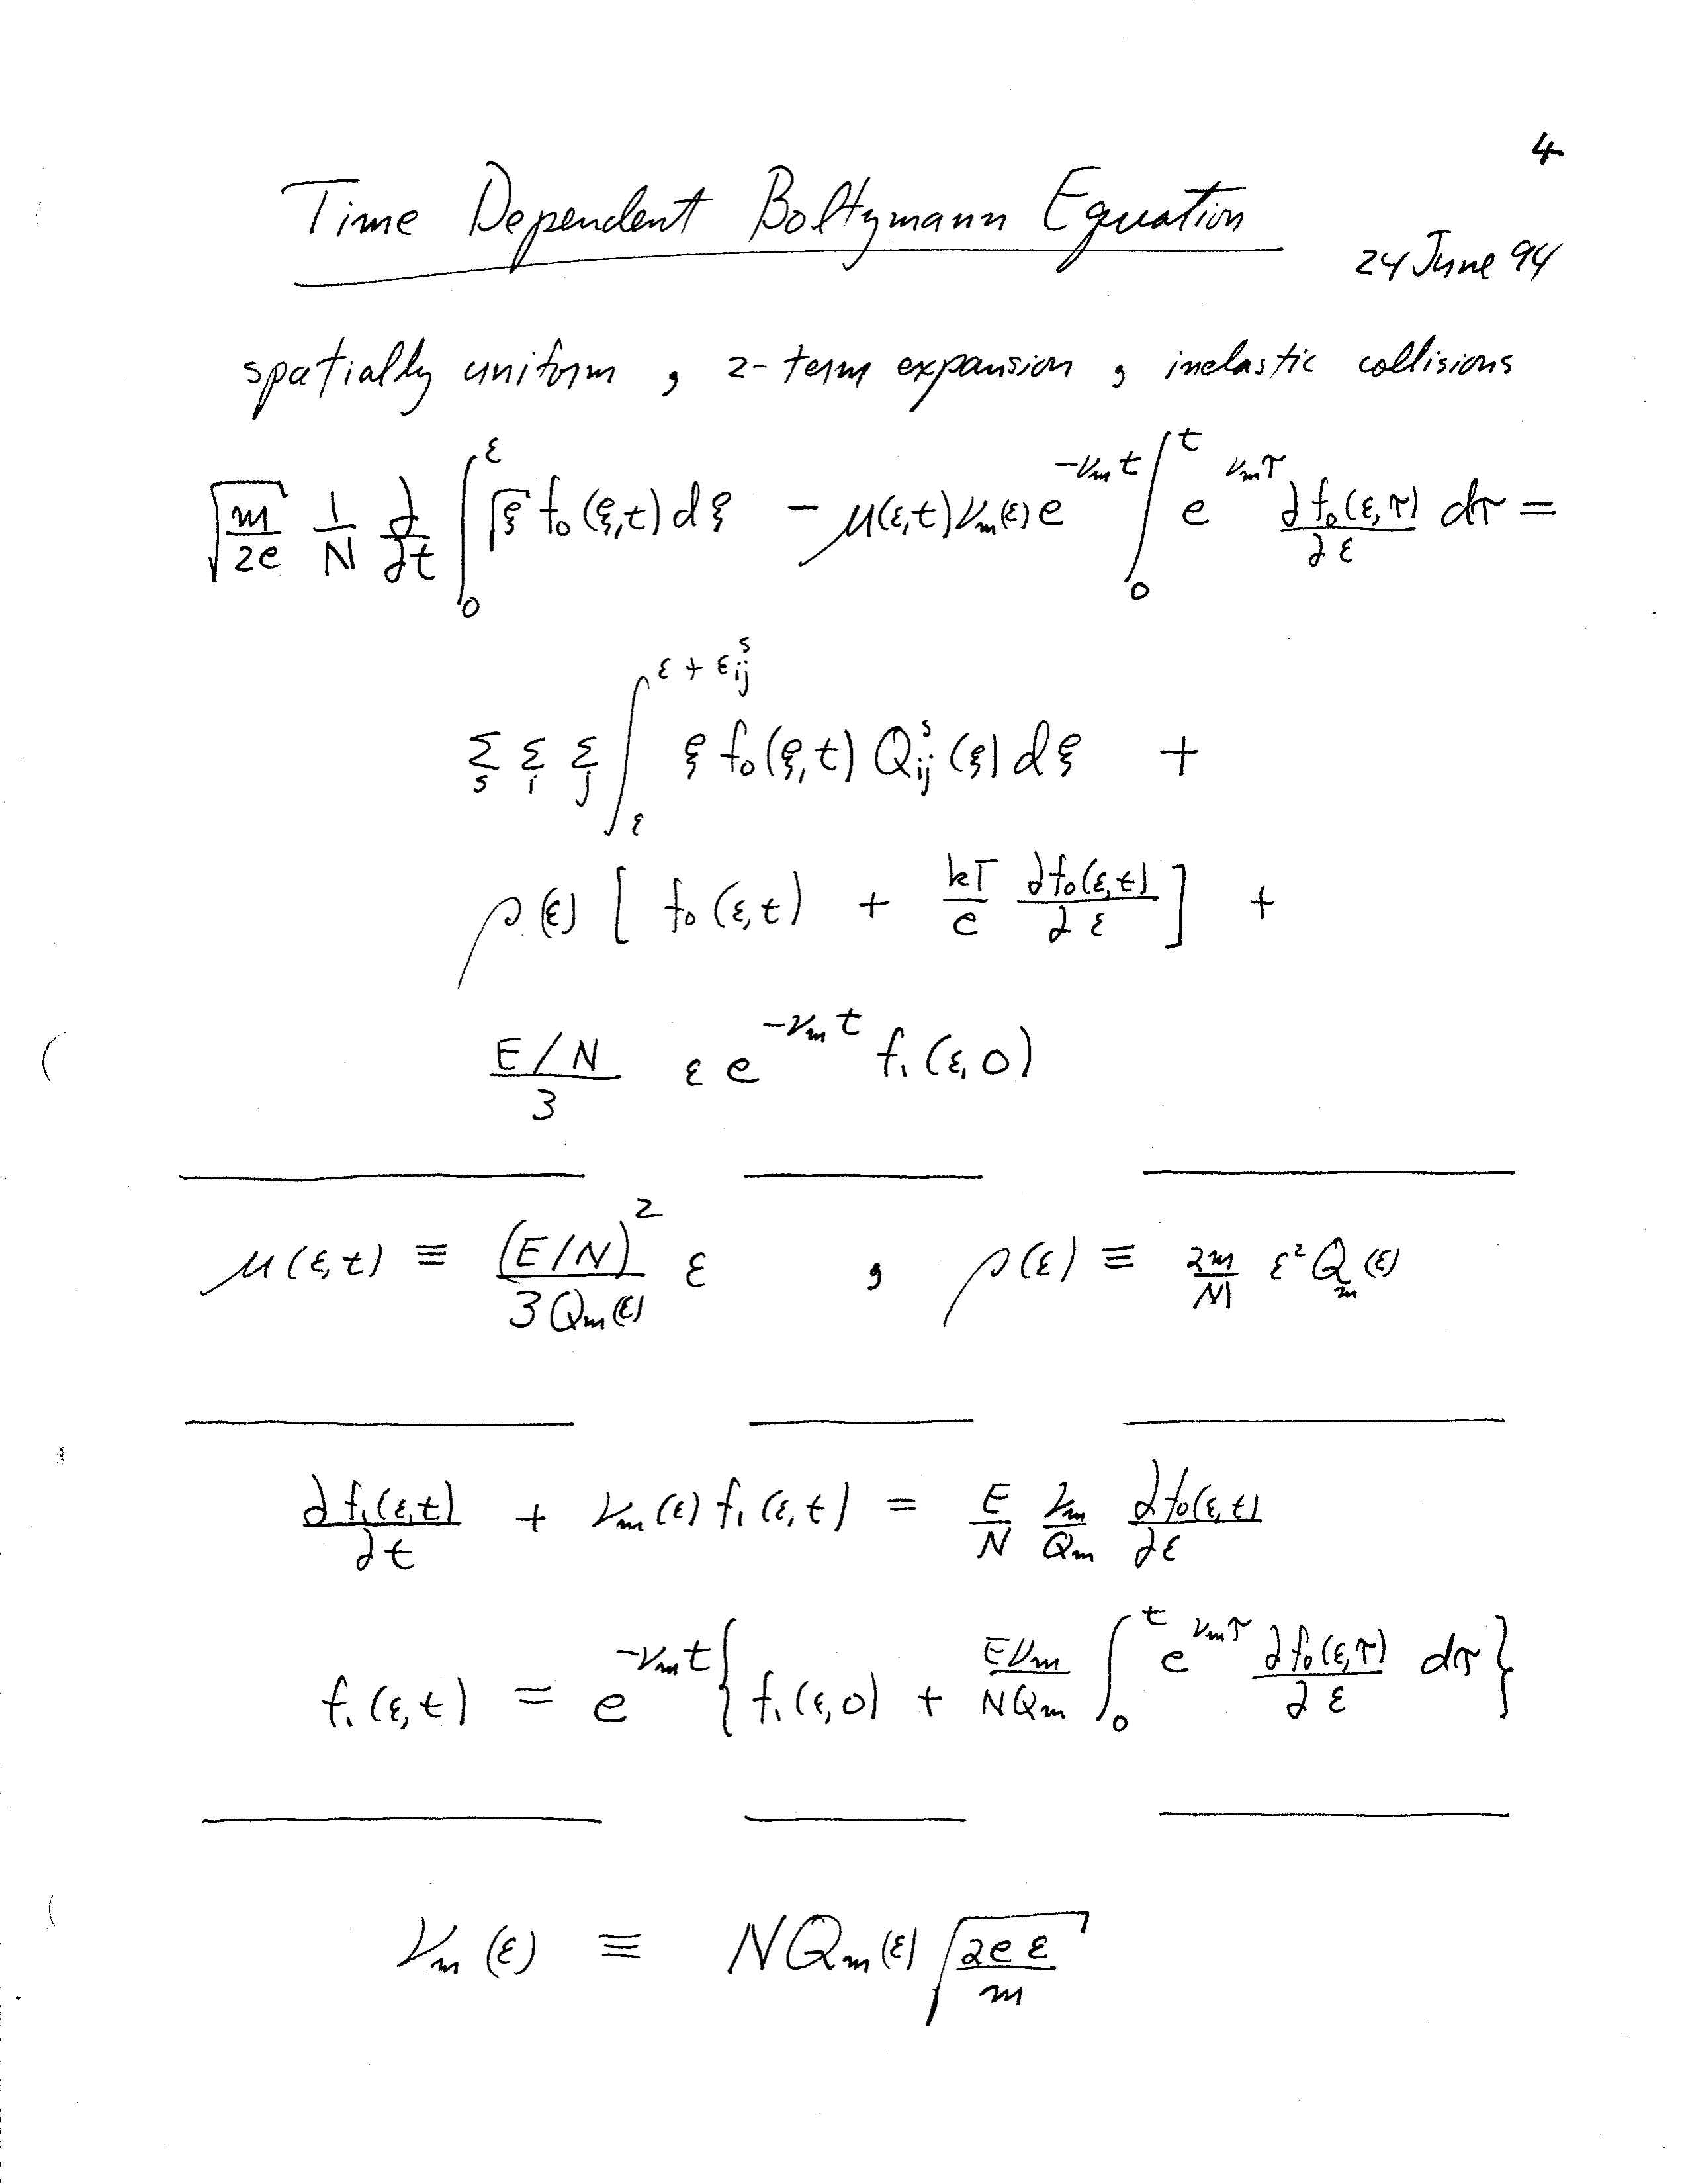 4
Time Dependent Boltzmann Equation
24 June 94
spatially uniform , 2-term expansion , inelastic collisions
√(m/2e) 1/N ∂/∂t ∫₀^ε √ξ f₀(ξ,t) dξ − μ(ε,t) νₘ(ε) e^(−νₘt) ∫₀^t e^(νₘτ) ∂f₀(ε,τ)/∂ε dτ =
Σₛ Σᵢ Σⱼ ∫_ε^(ε + εᵢⱼˢ) ξ f₀(ξ,t) Qᵢⱼˢ(ξ) dξ +
ρ(ε) [ f₀(ε,t) + kT/e ∂f₀(ε,t)/∂ε ] +
(E/N)/3 ε e^(−νₘt) f₁(ε,0)
μ(ε,t) ≡ (E/N)²/(3Qₘ(ε)) ε , ρ(ε) ≡ 2m/M ε² Qₘ(ε)
∂f₁(ε,t)/∂t + νₘ(ε) f₁(ε,t) = E/N νₘ/Qₘ ∂f₀(ε,t)/∂ε
f₁(ε,t) = e^(−νₘt) { f₁(ε,0) + Eνₘ/NQₘ ∫₀^t e^(νₘτ) ∂f₀(ε,τ)/∂ε dτ }
νₘ(ε) ≡ NQₘ(ε) √(2eε/m)